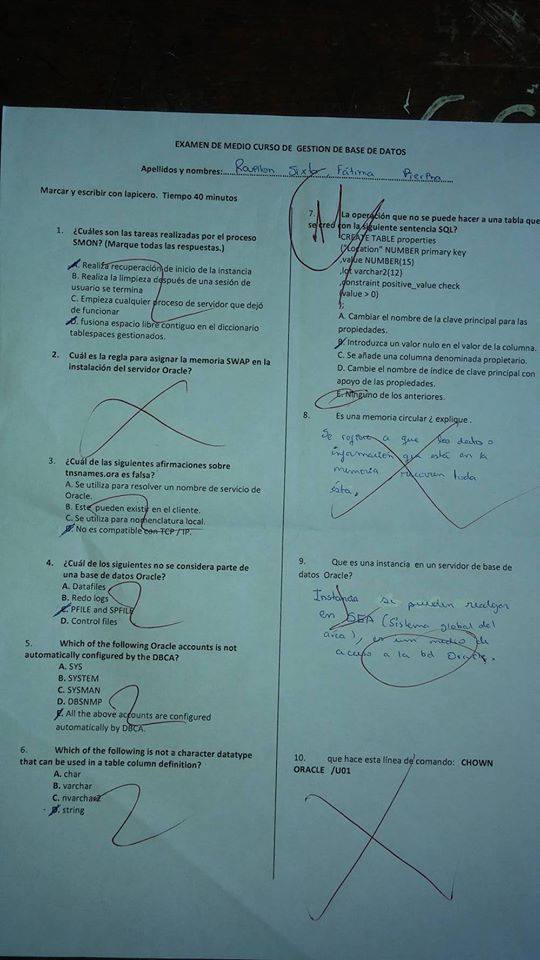 EXAMEN DE MEDIO CURSO DE GESTION DE BASE DE DATOS
Apellidos y nombres: Sixto Fátima Pierina
Marcar y escribir con lapicero. Tiempo 40 minutos
1. ¿Cuáles son las tareas realizadas por el proceso
SMON? (Marque todas las respuestas.)
A. Realiza recuperación de inicio de la instancia
B. Realiza la limpieza después de una sesión de
usuario se termina
C. Empieza cualquier proceso de servidor que dejó
de funcionar
D. fusiona espacio libre contiguo en el diccionario
tablespaces gestionados.
2. Cuál es la regla para asignar la memoria SWAP en la
instalación del servidor Oracle?
3. ¿Cuál de las siguientes afirmaciones sobre
tnsnames.ora es falsa?
A. Se utiliza para resolver un nombre de servicio de
Oracle.
B. Este pueden existir en el cliente.
C. Se utiliza para nomenclatura local.
D. No es compatible con TCP / IP.
4. ¿Cuál de los siguientes no se considera parte de
una base de datos Oracle?
A. Datafiles
B. Redo logs
C. PFILE and SPFILE
D. Control files
5. Which of the following Oracle accounts is not
automatically configured by the DBCA?
A. SYS
B. SYSTEM
C. SYSMAN
D. DBSNMP
E. All the above accounts are configured
automatically by DBCA.
6. Which of the following is not a character datatype
that can be used in a table column definition?
A. char
B. varchar
C. nvarchar2
D. string
7. La operación que no se puede hacer a una tabla que
se creó con la siguiente sentencia SQL?
CREATE TABLE properties
("Location" NUMBER primary key
,value NUMBER(15)
,lot varchar2(12)
,constraint positive_value check
(value > 0)
);
A. Cambiar el nombre de la clave principal para las
propiedades.
B. Introduzca un valor nulo en el valor de la columna.
C. Se añade una columna denominada propietario.
D. Cambie el nombre de índice de clave principal con
apoyo de las propiedades.
E. Ninguno de los anteriores.
8. Es una memoria circular ¿ explique .
Se refiere a que los datos o
información que está en la
memoria recorren toda
ésta.
9. Que es una instancia en un servidor de base de
datos Oracle?
Instancia se pueden realizar
en SGA (Sistema global del
área), es un medio de
acceso a la bd Oracle.
10. que hace esta línea de comando: CHOWN
ORACLE /U01